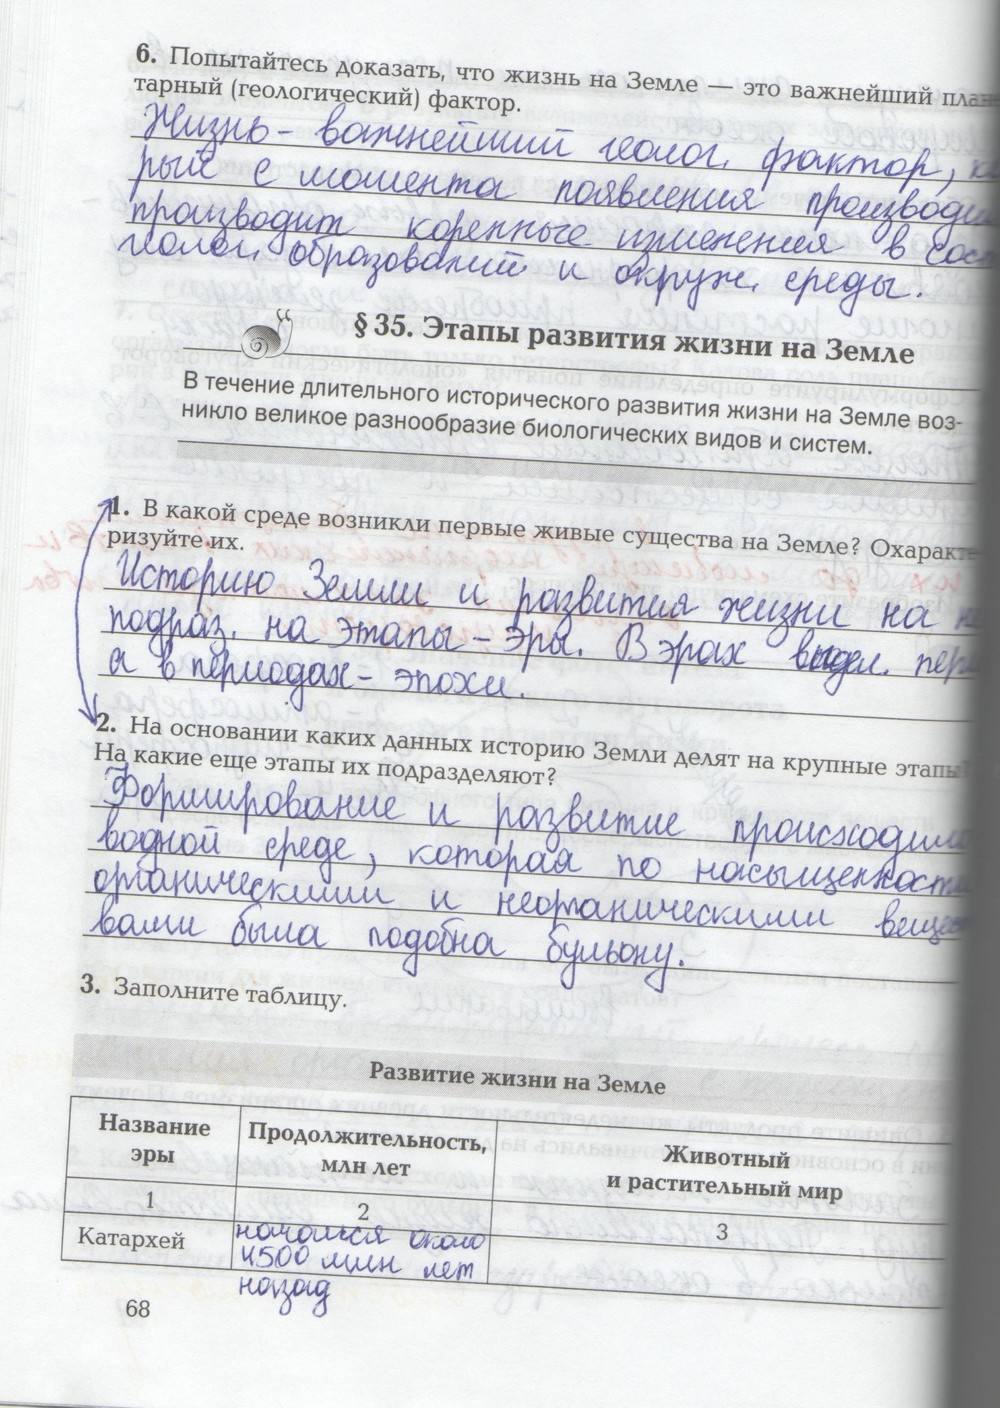 6. Попытайтесь доказать, что жизнь на Земле — это важнейший плане-
тарный (геологический) фактор.
Жизнь - важнейший геолог. фактор, ко
рый с момента появления производил
производит коренные изменения в сост
геолог. образований и окруж. среды.
§ 35. Этапы развития жизни на Земле
В течение длительного исторического развития жизни на Земле воз-
никло великое разнообразие биологических видов и систем.
1. В какой среде возникли первые живые существа на Земле? Охаракте-
ризуйте их.
Историю Земли и развития жизни на не
подраз. на этапы - эры. В эрах выдел. пери
а в периодах - эпохи.
2. На основании каких данных историю Земли делят на крупные этапы?
На какие еще этапы их подразделяют?
Формирование и развитие происходило
водной среде, которая по насыщенности
органическими и неорганическими вещес
вами была подобна бульону.
3. Заполните таблицу.
Развитие жизни на Земле
Название эры
Продолжительность, млн лет
Животный и растительный мир
1
2
3
Катархей
начался около
4500 млн лет
назад
68